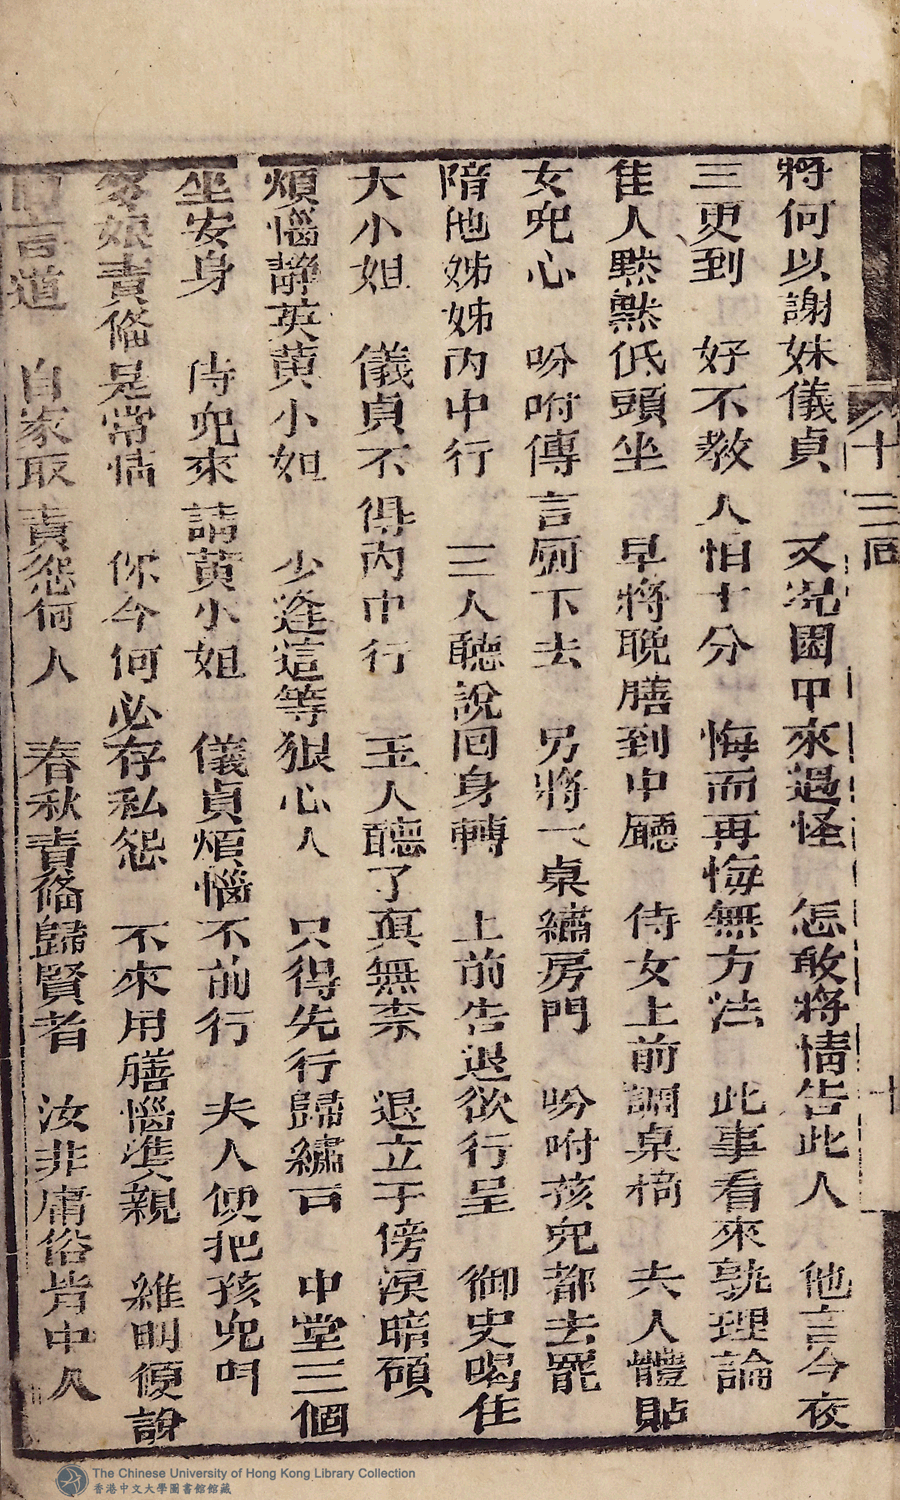 將何以謝妹儀貞 又況園甲來過怪 怎敢將情告此人 他言今夜
三更到 好不教人怕十分 悔而再悔無方法 此事看來孰理論
佳人黙黙低頭坐 早將晚膳到中廳 侍女上前調桌椅 夫人體貼
女兒心 吩咐傳言厠下去 另將一桌繡房門 吩咐孩兒都去罷
隋他姊姊內中行 三人聽說囘身轉 上前告退欲行呈 御史喝住
大小姐 儀貞不得內中行 玉人聽了眞無柰 退立于傍淚暗
煩惱靜英黄小姐 少逢這等狠心人 只得先行歸繡 中堂三個
坐安身 侍兒來請黄小姐 儀貞煩惱不前行 夫人便把孩兒呌
爹娘責俻是常情 你今何必存私怨 不來用膳惱雙親 維明便說
言道 自家取責怨何人 春秋責俻歸賢者 汝非庸俗肯中人
十三囘
十
The Chinese University of Hong Kong Library Collection
香港中文大學圖書館館藏